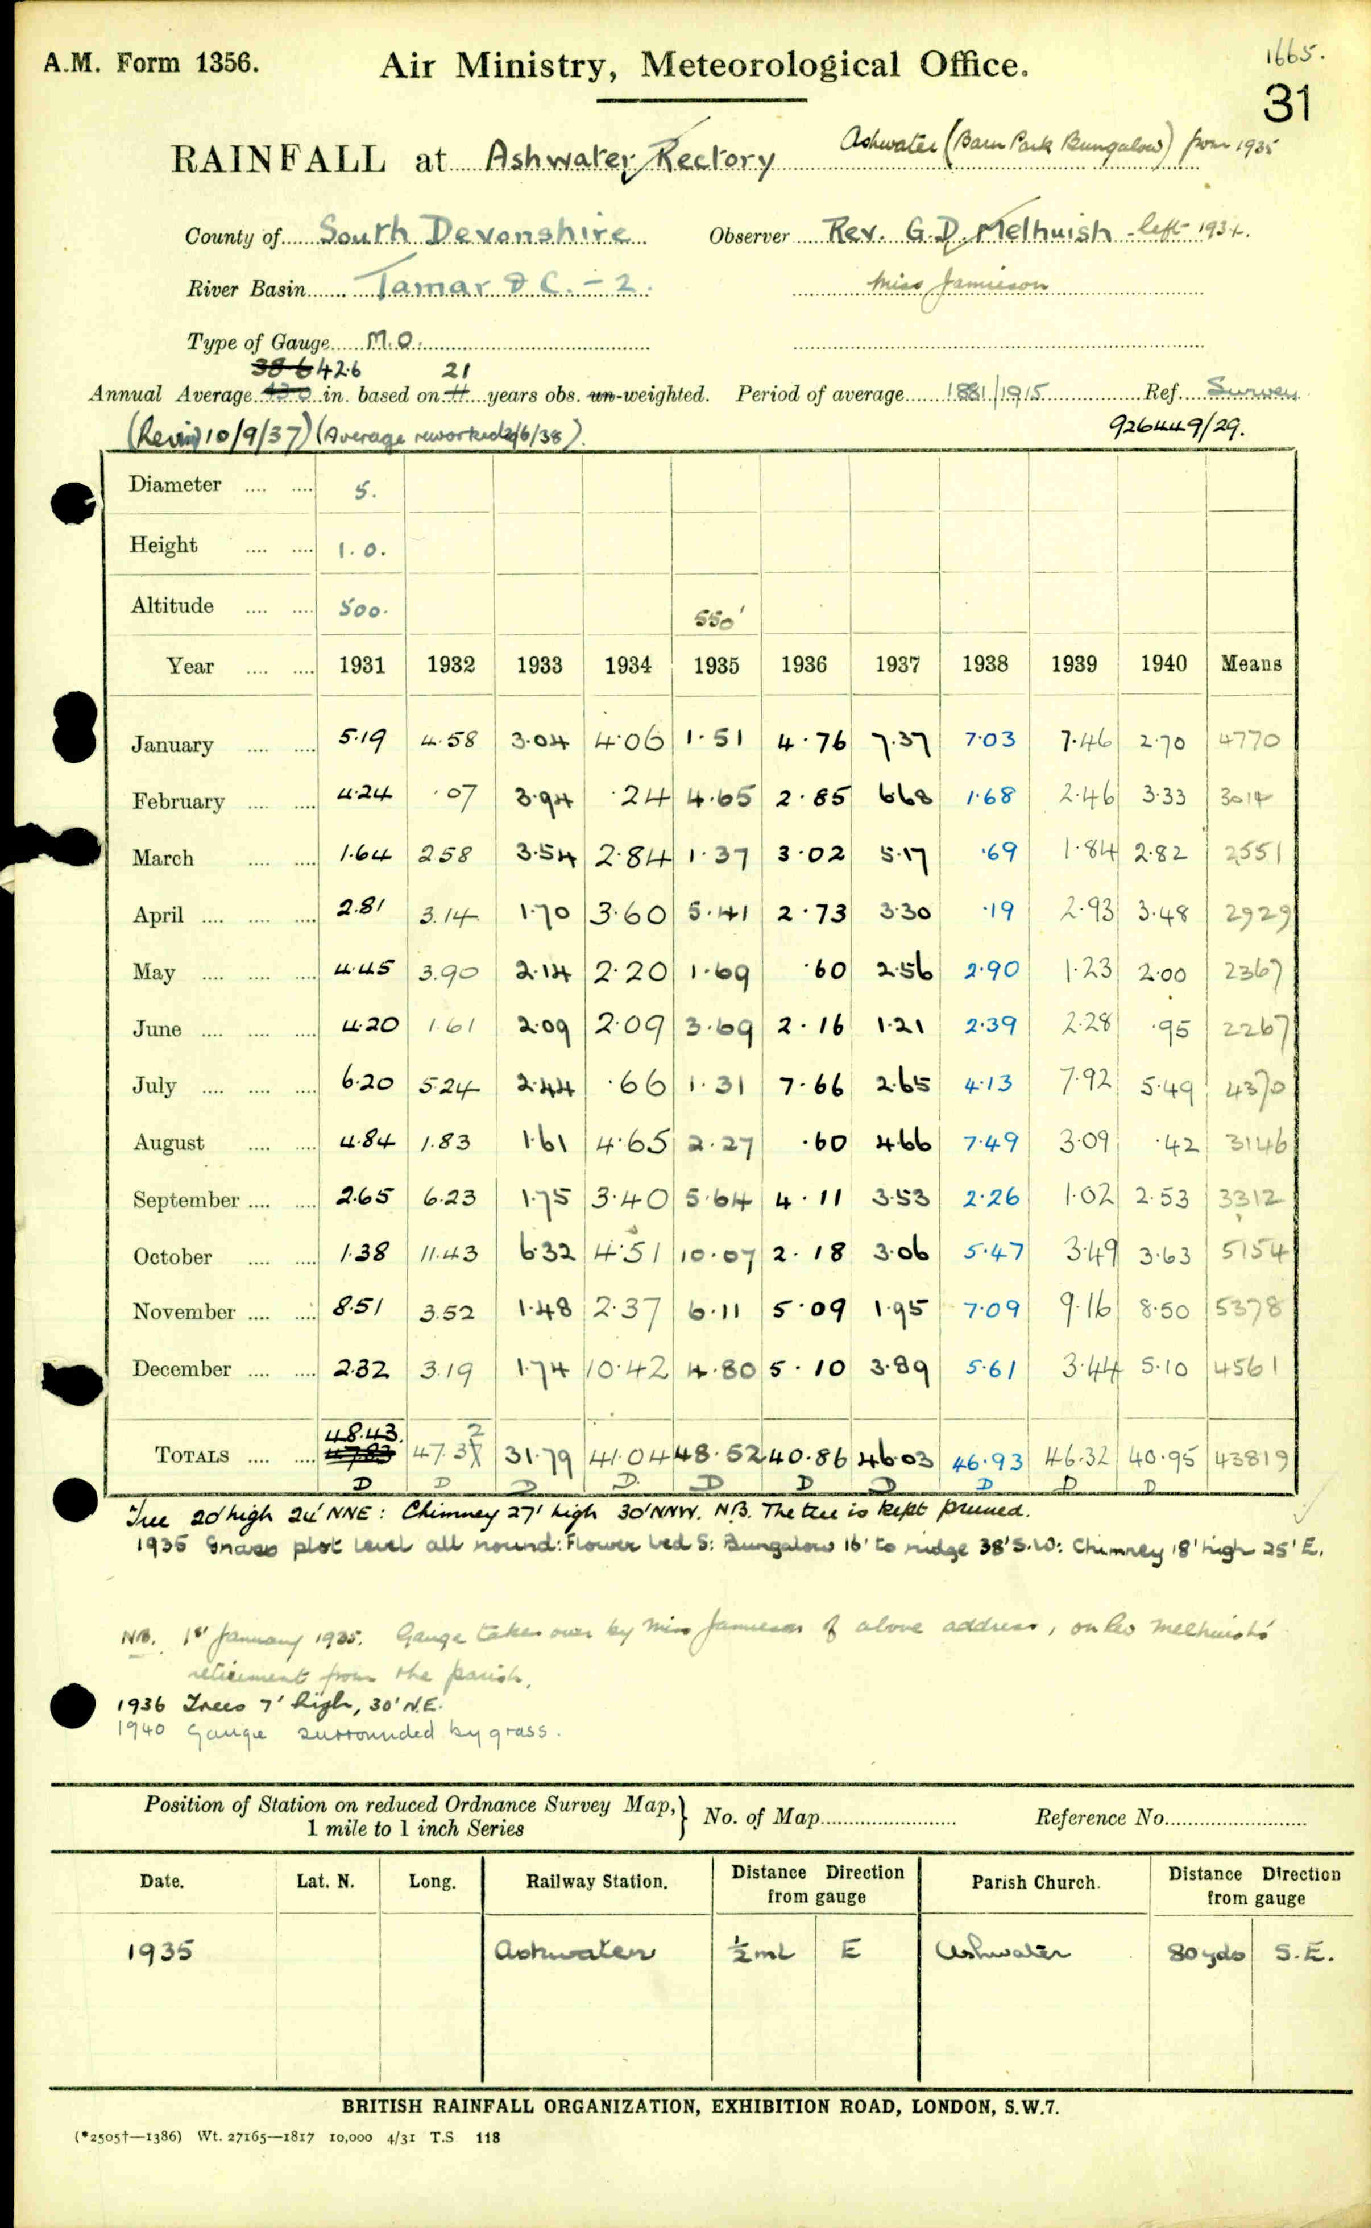 1665.
A.M. Form 1356. Air Ministry, Meteorological Office.
31
RAINFALL at Ashwater Rectory Ashwater (Barn Park Bungalow) from 1935
County of South Devonshire Observer Rev. G.D. Melhuish left 1934.
River Basin Tamar & C. - 2. Miss Jamieson
Type of Gauge M.O.
38.6 42.6 21
Annual Average 43.0 in. based on 11 years obs. un-weighted. Period of average 1881/1915 Ref. Survey
(Revised 10/9/37) (Average reworked 29/6/38). 926449/29.
Diameter 5.
Height 1.0.
Altitude 500. 550'
Year 1931 1932 1933 1934 1935 1936 1937 1938 1939 1940 Means
January 5.19 4.58 3.04 4.06 1.51 4.76 7.37 7.03 7.46 2.70 4770
February 4.24 .07 3.94 .24 4.65 2.85 6.68 1.68 2.46 3.33 3014
March 1.64 2.58 3.54 2.84 1.37 3.02 5.17 .69 1.84 2.82 2551
April 2.81 3.14 1.70 3.60 5.41 2.73 3.30 .19 2.93 3.48 2929
May 4.45 3.90 2.14 2.20 1.69 .60 2.56 2.90 1.23 2.00 2367
June 4.20 1.61 2.09 2.09 3.69 2.16 1.21 2.39 2.28 .95 2267
July 6.20 5.24 2.44 .66 1.31 7.66 2.65 4.13 7.92 5.49 4370
August 4.84 1.83 1.61 4.65 2.27 .60 4.66 7.49 3.09 .42 3146
September 2.65 6.23 1.75 3.40 5.64 4.11 3.53 2.26 1.02 2.53 3312
October 1.38 11.43 6.32 4.51 10.07 2.18 3.06 5.47 3.49 3.63 5154
November 8.51 3.52 1.48 2.37 6.11 5.09 1.95 7.09 9.16 8.50 5378
December 2.32 3.19 1.74 10.42 4.80 5.10 3.89 5.61 3.44 5.10 4561
48.43.
TOTALS 47.83 47.32 31.79 41.04 48.52 40.86 46.03 46.93 46.32 40.95 43819
D D D D D D D D D D
Tree 20' high 24' NNE: Chimney 27' high 30' NNW. N.B. The tree is kept pruned.
1935 Grass plot level all round: Flower bed S: Bungalow 16' to ridge 38' S.W: Chimney 18' high 25' E.
NB. 1st January 1935. Gauge taken over by Miss Jamieson of above address, on Rev Melhuish's
retirement from the parish.
1936 Trees 7' high, 30' N.E.
1940 Gauge surrounded by grass.
Position of Station on reduced Ordnance Survey Map, No. of Map Reference No.
1 mile to 1 inch Series
Date. Lat. N. Long. Railway Station. Distance Direction from gauge Parish Church. Distance Direction from gauge
1935 Ashwater ½ ml E Ashwater 80 yds S.E.
BRITISH RAINFALL ORGANIZATION, EXHIBITION ROAD, LONDON, S.W.7.
(*2505†—1386) Wt. 27165—1817 10,000 4/31 T.S. 118